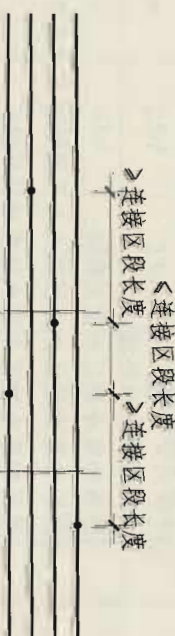 ≥连接区段长度
≤连接区段长度
≥连接区段长度